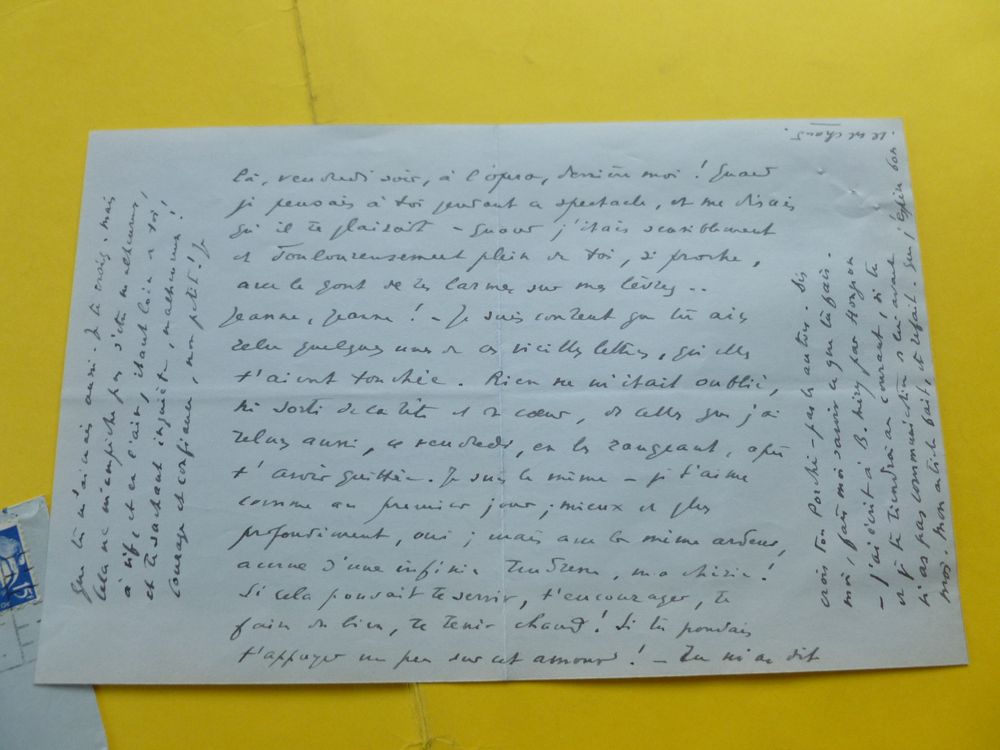 là, vendredi soir, à l'opéra, derrière moi ! Quand
je pensais à toi pendant ce spectacle, et me disais
qu'il te plairait – quand j'étais sensiblement
et douloureusement plein de toi, si proche,
avec le goût de tes larmes sur mes lèvres..
Jeanne, Jeanne ! – Je suis content que tu aies
relu quelques unes de ces vieilles lettres, qu'elles
t'aient touchée. Rien ne m'était oublié,
ni sorti de la tête et du cœur, de celles que j'ai
relues aussi, ce vendredi, en les rangeant, après
t'avoir quittée. Je suis le même – je t'aime
comme au premier jour ; mieux et plus
profondément, oui ; mais avec la même ardeur,
avec une infinie tendresse, ma chérie !
Si cela pouvait te servir, t'encourager, te
faire du bien, te tenir chaud ! Si tu pouvais
t'appuyer un peu sur cet amour ! – Tu m'as dit
que tu m'aimais aussi. Je le crois. mais
cela ne m'empêche pas d'être malheureux,
à vif et en l'air, étant loin de toi,
et te sachant inquiète, malheureuse !
Courage et confiance, mon petit ! Je
crois ton Porché – pas les autres. Dis
moi, fais moi savoir ce que tu fais.
– J'ai écrit à B. hier, par
et je te tiendrai au courant, si tu
n'as pas communication de lui avant
moi. Mon article fait, et refait. que j'espère bon.